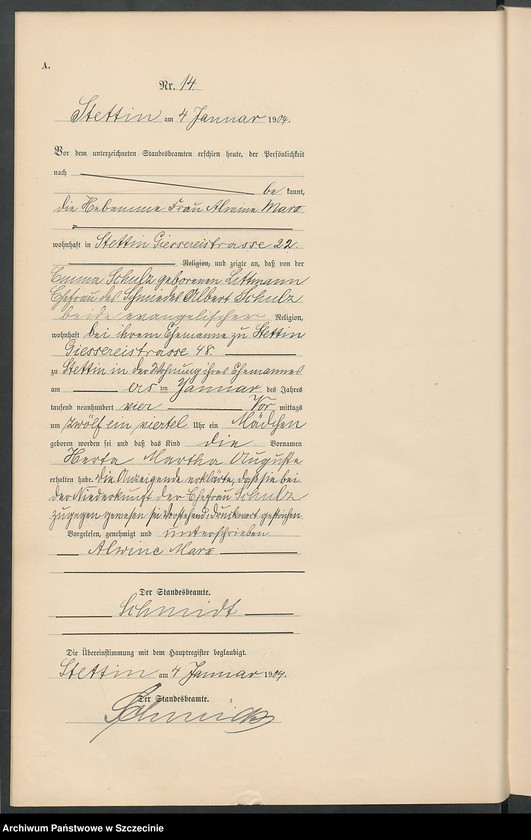 A.
Nr. 14
Stettin am 4 Januar 1904.
Vor dem unterzeichneten Standesbeamten erschien heute, der Persönlichkeit
nach
be kannt,
die Hebamme Frau Alwine Marx
wohnhaft in Stettin Giessereistrasse 22.
Religion, und zeigte an, daß von der
Emma Schulz geborenen Littmann
Ehefrau des Schmiedes Albert Schulz
beide evangelischer Religion,
wohnhaft bei ihrem Ehemanne zu Stettin
Giessereistrasse 48.
zu Stettin in der Wohnung ihres Ehemannes
am ers ten Januar des Jahres
tausend neunhundert vier Vor mittags
um zwölf ein viertel Uhr ein Mädchen
geboren worden sei und daß das Kind die Vornamen
Herta Martha Auguste
erhalten habe. Die Anzeigende erklärte, daß sie bei
der Niederkunft der Ehefrau Schulz
zugegen gewesen sei. Vorstehend 1 Druckwort gestrichen.
Vorgelesen, genehmigt und unterschrieben
Alwine Marx
Der Standesbeamte.
Schmidt
Die Übereinstimmung mit dem Hauptregister beglaubigt.
Stettin am 4 Januar 1904.
Der Standesbeamte.
Schmidt
Archiwum Państwowe w Szczecinie